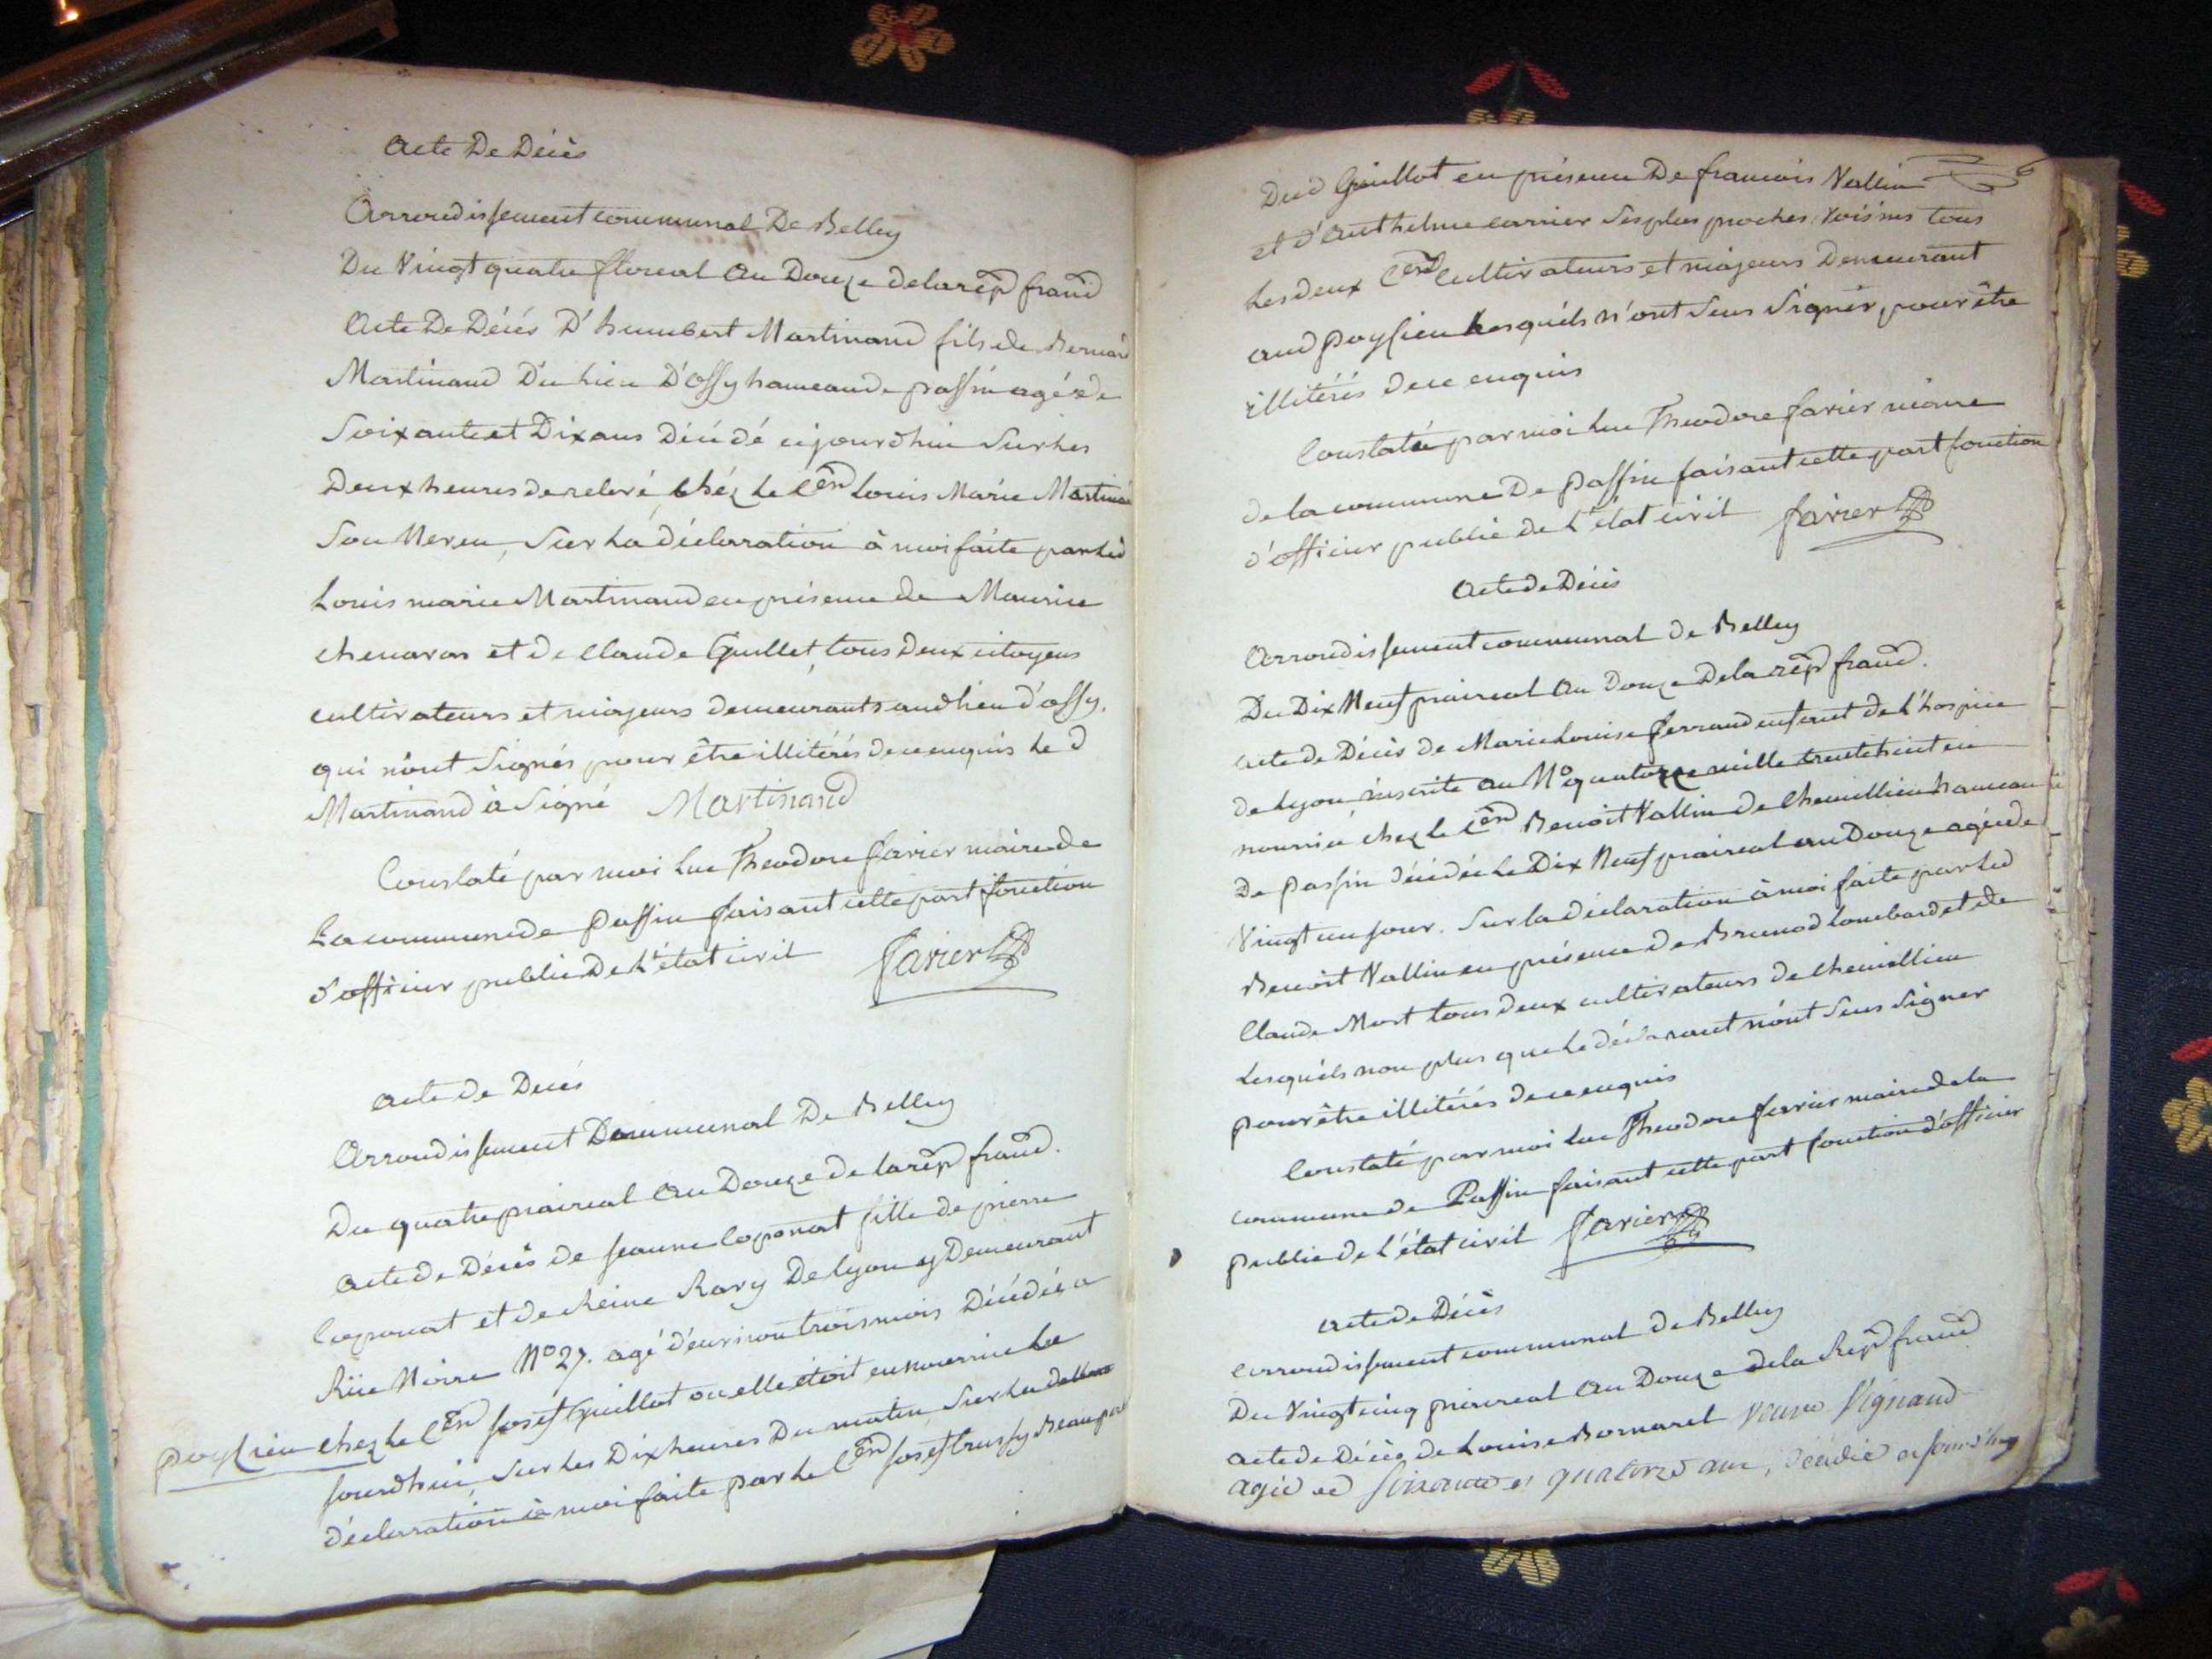 Acte De Décès
Arrondissement communal De Belley
Du Vingt quatre floreal an Douze de la rép franc
Acte De Décés D'humbert Martinand fils de Bernard
Martinand Du lieu D'ossy hameau de passin agé de
Soixante et Dix ans Décédé cejourdhui Sur les
Deux heures de relevé, chéz le Cen Louis Marie Martinand
Son Neveu, Sur La déclaration à moi faite par led
Louis marie Martinand en présence de Maurice
chenavas et de claude Guillet, tous Deux citoyens
cultivateurs et majeurs demeurants aud lieu d'ossy.
qui n'ont Signés pour être illitérés de ce enquis Le d
Martinand à Signé Martinand
Constaté par moi Luc Theodore favier maire de
La commune de Passin faisant cette part fonction
d'officier public De L'état civil favier
Acte de Decés
Arrondissement Communal De Belley
Du quatre praireal an Douze de la rép franc.
Acte de Décés de jeanne Coponat fille de pierre
Coponat et de Reine Rary De Lyon y Demeurant
Rüe Noire No 27. agé d'environ trois mois Décédée a
poysieu chez le Cen josef Guillot ou elle étoit en nourrice Le
jourdhui, Sur les Dix heures Du matin, Sur La
déclaration à moi faite par le Cen josef
Dud Guillot en présence De francois Vallin
et d'Anthelme carrier Ses plus proches Voisins tous
Les deux Cen Cultivateurs et majeurs Demeurant
aud Poysieu Lesquéls n'ont Seus Signér pour être
illitérés de ce enquis
Constaté par moi Luc Theodore favier maire
de la commune De Passin faisant cette part fonction
d'officier public de L'état civil favier
Acte de Décés
Arrondissement communal de Belley
Du Dix Neuf prairéal An Douze De la rép franc.
acte de Décès de Marie Louise ferrand enfant de L'hospice
de Lyon inscrite au No quatorze mille trente huit en
nourrice chez le Cen Benoit Vallin de Chemillieu hameau
De Passin décédée le Dix Neuf praireal an Douze agée de
Vingt un jour. Sur la déclaration à moi faite par led
Benoit Vallin en présence de Brunod Lombard et de
Claude Mort tous deux cultivateurs de chemillieu
Lesquéls non plus que le déclarant n'ont Seus Signer
pour être illitérés de ce enquis
Constaté par moi Luc Theodore favier maire de la
commune de Passin faisant cette part fonction d'officier
public de L'état civil favier
acte de Décès
arrondissement communal de Belley
Du Vingt cinq praireal An Douze de la Rép franc
acte de Décès de Louise Bornarel veuve Vignand
agée de soixante et quatorze ans, décédée